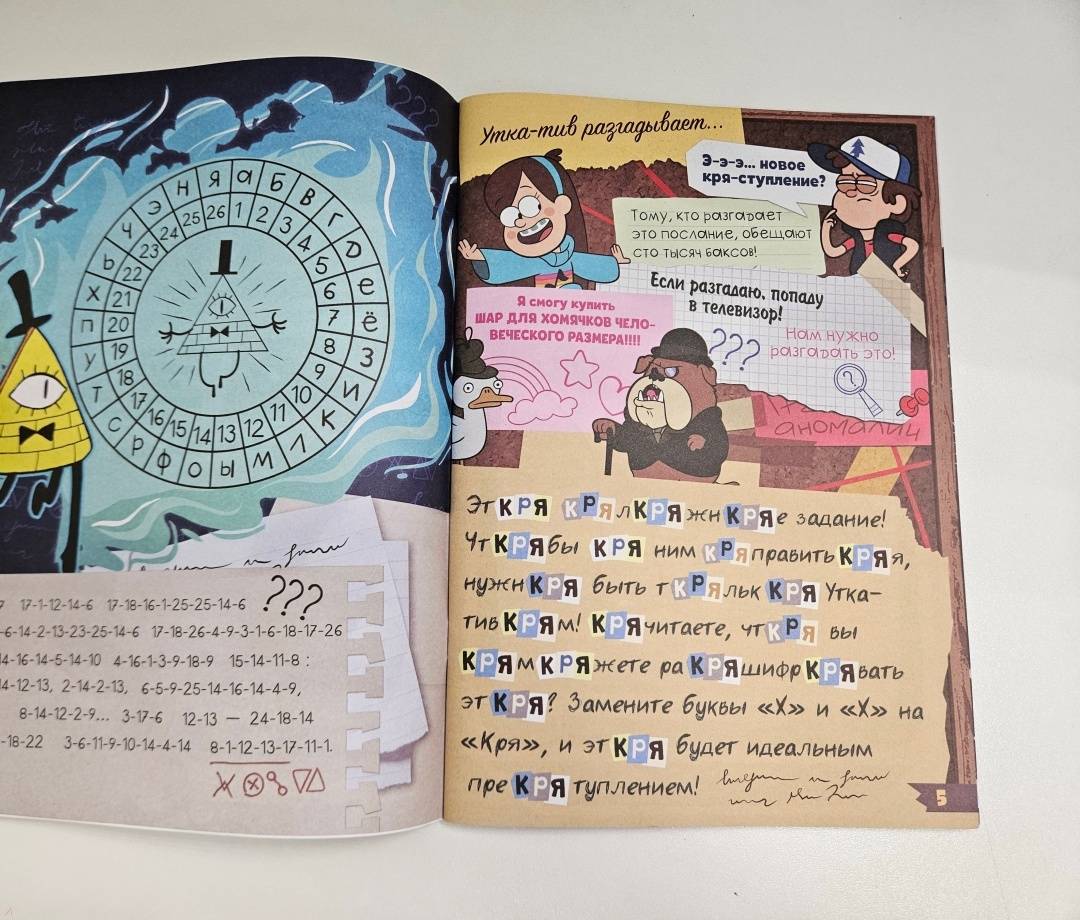 ???
а б в г д е ё з и к л м ы о ф р с т у п х ь ч э н я
1 2 3 4 5 6 7 8 9 10 11 12 13 14 15 16 17 18 19 20 21 22 23 24 25 26
17-1-12-14-6 17-18-16-1-25-25-14-6 ???
-6-14-2-13-23-25-14-6 17-18-26-4-9-3-1-6-18-17-26
14-16-14-5-14-10 4-16-1-3-9-18-9 15-14-11-8 :
14-12-13, 2-14-2-13, 6-5-9-25-14-16-14-4-9,
8-14-12-2-9... 3-17-6 12-13 — 24-18-14
-18-22 3-6-11-9-10-14-4-14 8-1-12-13-17-11-1.
Утка-тив разгадывает...
Э-э-э... новое
кря-ступление?
Тому, кто разгадает
это послание, обещают
сто тысяч баксов!
Если разгадаю, попаду
в телевизор!
Я смогу купить
ШАР ДЛЯ ХОМЯЧКОВ ЧЕЛО-
ВЕЧЕСКОГО РАЗМЕРА!!!!
???
Нам нужно
разгадать это!
?
аномалии
Эткря крялкряжнкряе задание!
Чткрябы кря ним кряправитькряя,
нужнкря быть ткряльк кря Утка-
тивкрям! Крячитаете, чткря вы
крямкряжете ракряшифркрявать
эткря? Замените буквы «Х» и «Х» на
«Кря», и эткря будет идеальным
прекрятуплением!
5